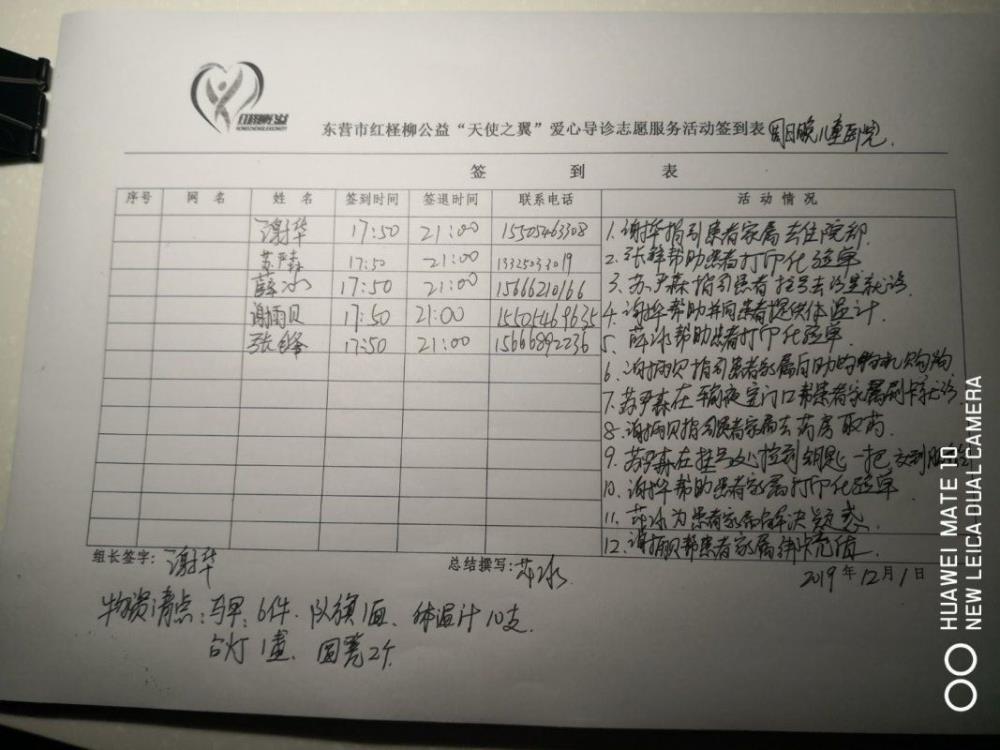 红柽柳公益
东营市红柽柳公益“天使之翼”爱心导诊志愿服务活动签到表(周日晚儿童医院)
签 到 表
序号 网 名 姓 名 签到时间 签退时间 联系电话 活 动 情 况
谢华 17:50 21:00 15505463308
苏尹森 17:50 21:00 13325033019
薛冰 17:50 21:00 15666210166
谢雨贝 17:50 21:00 15505469635
张锋 17:50 21:00 15666892236
1. 谢华指引患者家属去住院部
2. 张锋帮助患者打印化验单
3. 苏尹森指引患者挂号去诊室就诊
4. 谢华帮助并向患者提供体温计
5. 薛冰帮助患者打印化验单
6. 谢雨贝指引患者家属自助购物机购物
7. 苏尹森在输液室门口帮患者家属刷卡就诊
8. 谢雨贝指引患者家属去药房取药
9. 苏尹森在挂号处捡到钥匙一把交到
10. 谢华帮助患者家属打印化验单
11. 薛冰为患者家属解决疑惑
12. 谢雨贝帮患者家属绑卡充值
组长签字:谢华 总结撰写:薛冰
2019年12月1日
物资清点:马甲:6件. 队旗1面、体温计10支.
台灯1盏、圆凳2个
HUAWEI MATE 10
NEW LEICA DUAL CAMERA